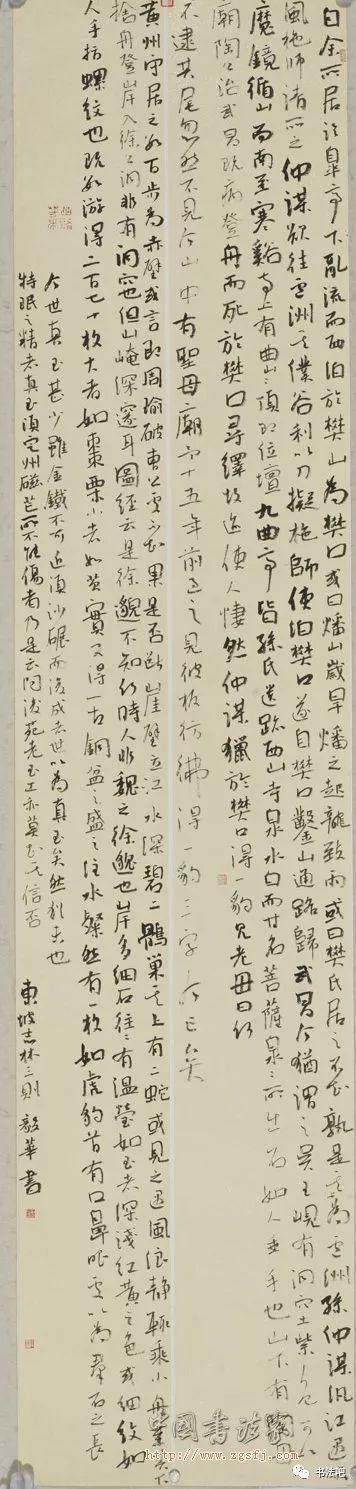 自余所居临皋亭下乱流而西泊於樊山為樊口或曰燔山歲旱燔之起龍致雨或曰樊氏居之不知孰是其上為盧洲孫仲謀汎江遇大
風柂師請所之仲謀欲往盧洲其僕谷利以刀擬柂師使泊樊口遂自樊口鑿山通路歸武昌今猶謂之吳王峴有洞穴土紫色可以
磨鏡循山而南至寒谿寺上有曲山山頂即位壇九曲亭皆孫氏遺跡西山寺泉水白而甘名菩薩泉泉所出石如人垂手也山下有陶母
廟陶公治武昌既病登舟而死於樊口尋繹故迹使人悽然仲謀獵於樊口得一豹見老母曰何
不逮其尾忽然不見今山中有聖母廟予十五年前過之見彼板彷彿得一豹三字今亡矣
黃州守居之數百步為赤壁或言即周瑜破曹公處不知果是否斷崖壁立江水深碧二鶻巢其上有二蛇或見之遇風浪靜輒乘小舟至其下
捨舟登岸入徐公洞非有洞穴也但山崦深邃耳圖經云是徐邈不知何時人非魏之徐邈也岸多細石往往有溫瑩如玉者深淺紅黃之色或細紋如
人手指螺紋也既數游得二百七十枚大者如棗栗小者如芡實又得一古銅盆盛之注水粲然有一枚如虎豹首有口鼻眼處以為群石之長
今世真玉甚少雖金鐵不可近須沙碾而後成者世以為真玉矣然猶未也
特珉之精者真玉須定州磁芒所不能傷者乃是云問後苑老玉工亦莫知其信否
東坡志林三則 毅華書
中国書法家
http://www.zgsfj.com
书法吧